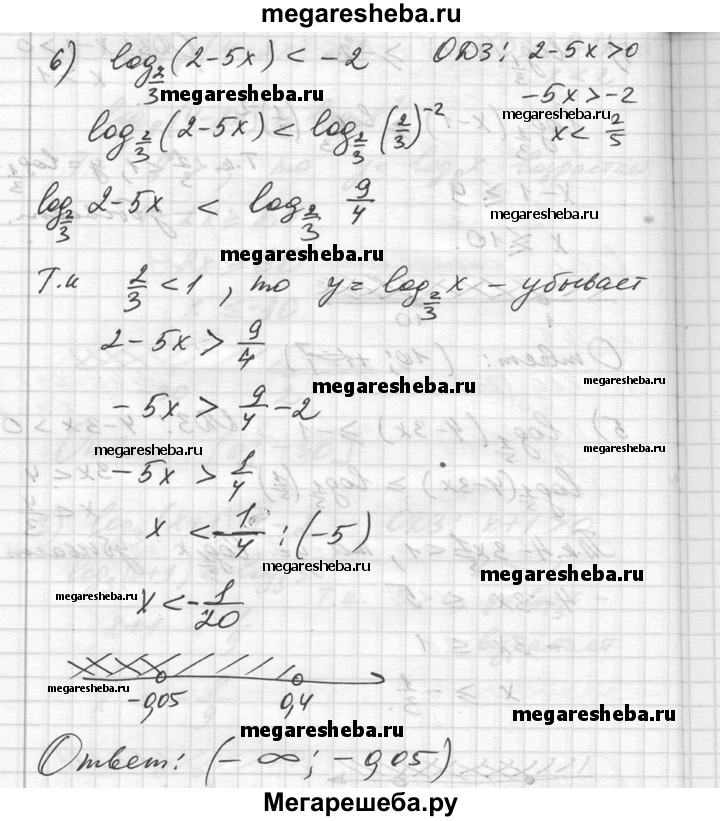 megaresheba.ru
б) log_{2/3}(2-5x) < -2 ОДЗ: 2-5x>0
megaresheba.ru
-5x>-2
megaresheba.ru
log_{2/3}(2-5x) < log_{2/3}(2/3)^{-2} x < 2/5
log_{2/3} 2-5x < log_{2/3} 9/4
megaresheba.ru
megaresheba.ru
Т.к 2/3 < 1, то y = log_{2/3} x - убывает
2-5x > 9/4
megaresheba.ru
megaresheba.ru
-5x > 9/4 - 2
megaresheba.ru
megaresheba.ru
-5x > 1/4
x < 1/4 : (-5)
megaresheba.ru
megaresheba.ru
megaresheba.ru
x < -1/20
megaresheba.ru
-0,05 0,4
megaresheba.ru
megaresheba.ru
Ответ: (-∞; -0,05)
Мегарешеба.ру